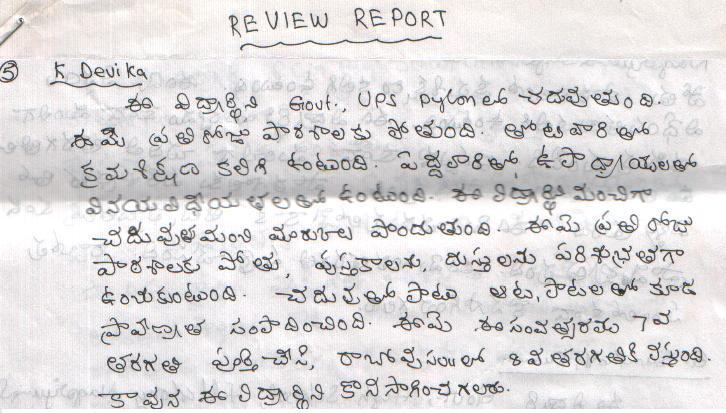 REVIEW REPORT
5 K Devika
ఈ విద్యార్థిని Govt., UPS pylon లో చదువుతుంది.
ఈమె ప్రతిరోజు పాఠశాలకు పోతుంది. తోటివారితో
క్రమశిక్షణ కలిగి ఉంటుంది. పెద్దవారితో, ఉపాధ్యాయులతో
వినయవిధేయతలతో ఉంటుంది. ఈ విద్యార్థిని మంచిగా
చదువుతమంచి మార్కుల పొందుతుంది. ఈమె ప్రతి రోజు
పాఠశాలకు పోతు, పుస్తకాలను, దుస్తులను పరిశుభ్రతగా
ఉంచుకుంటుంది. చదువుతోపాటు ఆట, పాటలతో కూడ
ప్రావీణ్యత సంపాదించింది. ఈమె ఈ సంవత్సరము 7వ
తరగతి పూర్తిచేసి, రాబోవు సం॥లో 8వ తరగతికి వస్తుంది.
కావున ఈ విద్యార్థిని కొనసాగించగలరు.